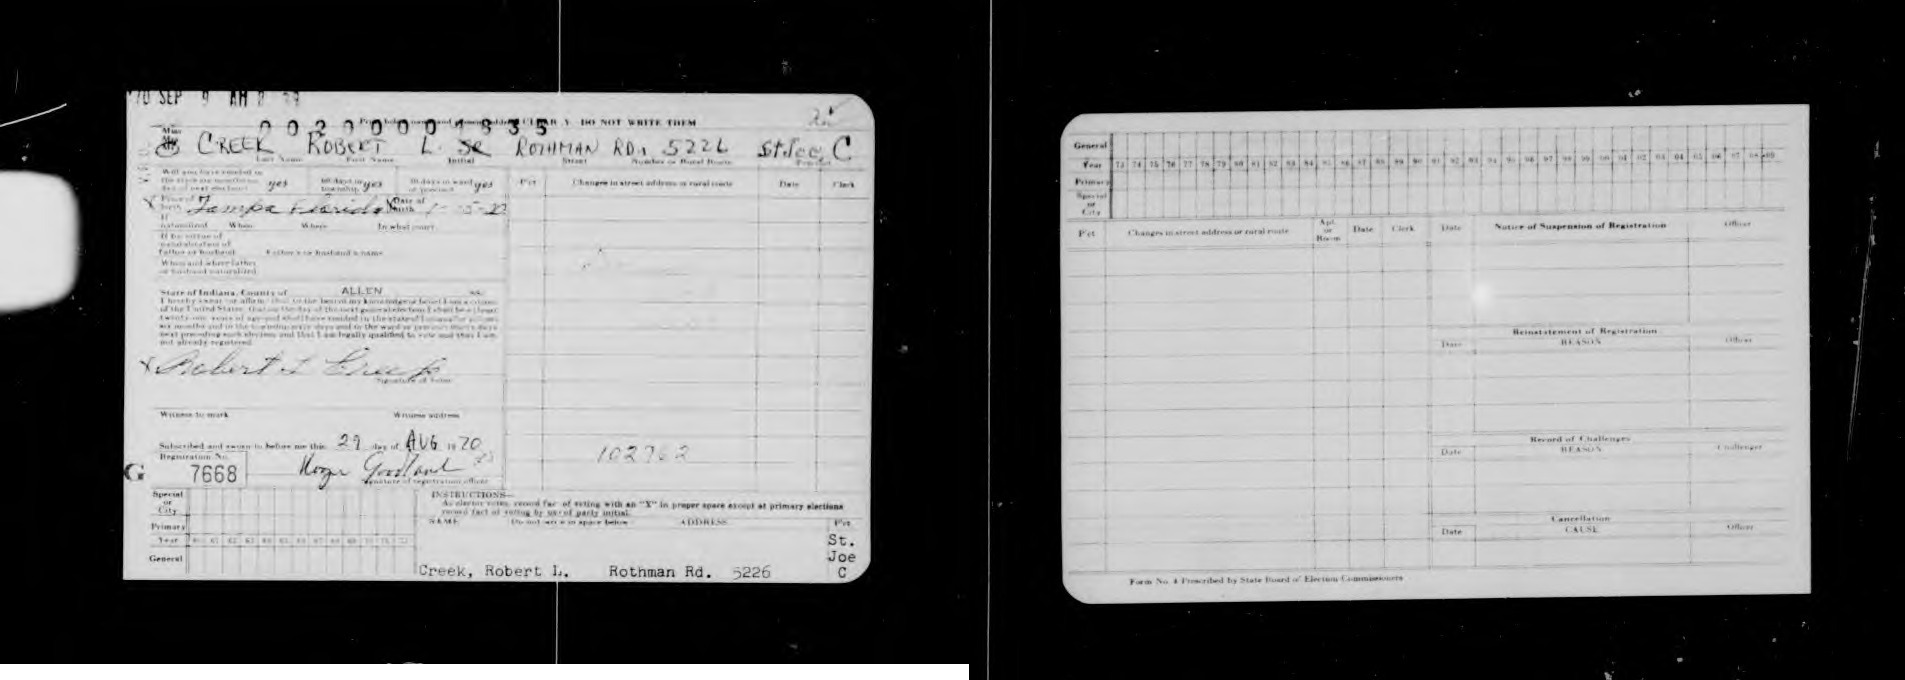 70 SEP 9 AM
0020001835
CLEARLY. DO NOT WRITE THEM
Miss
CREEK ROBERT L. SR ROTHMAN RD. 5226 St.Joe C
Last Name First Name Initial Street Number or Rural Route Precinct
yes 60 days in township yes 30 days in ward or precinct yes Pct Changes in street address or rural route Date Clerk
X Place of birth Tampa Florida X Date of birth
If naturalized When Where In what court
If by virtue of naturalization of father or husband Father's or husband's name
When and where father or husband naturalized
State of Indiana, County of ALLEN ss:
I hereby swear (or affirm) that to the best of my knowledge or belief I am a citizen
of the United States, that on the day of the next general election I shall be at least
twenty-one years of age and shall have resided in the state of Indiana
six months and in the township sixty days and in the ward or precinct thirty days
next preceding such election and that I am legally qualified to vote and that I am
not already registered.
X Robert L Creek
Signature of Voter
Witness to mark Witness address
Subscribed and sworn to before me this 29 day of AUG 1970
Registration No.
G 7668 Roger Goodland
Signature of registration officer
102762
Special or City
Primary
Year
General
INSTRUCTIONS—
As elector votes, record fact of voting with an "X" in proper space except at primary elections
record fact of voting by use of party initial.
NAME Do not write in space below ADDRESS Pct.
St.
Joe
Creek, Robert L. Rothman Rd. 5226 C
General
Year 73 74 75 76 77 78 79 80 81 82 83 84 85 86 87 88 89 90 91 92 93 94 95 96 97 98 99 00 01 02 03 04 05 06 07 08 09
Primary
Special or City
Pct Changes in street address or rural route Apt. or Room Date Clerk Date Notice of Suspension of Registration Officer
Reinstatement of Registration
Date REASON Officer
Record of Challenges
Date REASON Challenger
Cancellation
Date CAUSE Officer
Form No. 4 Prescribed by State Board of Election Commissioners